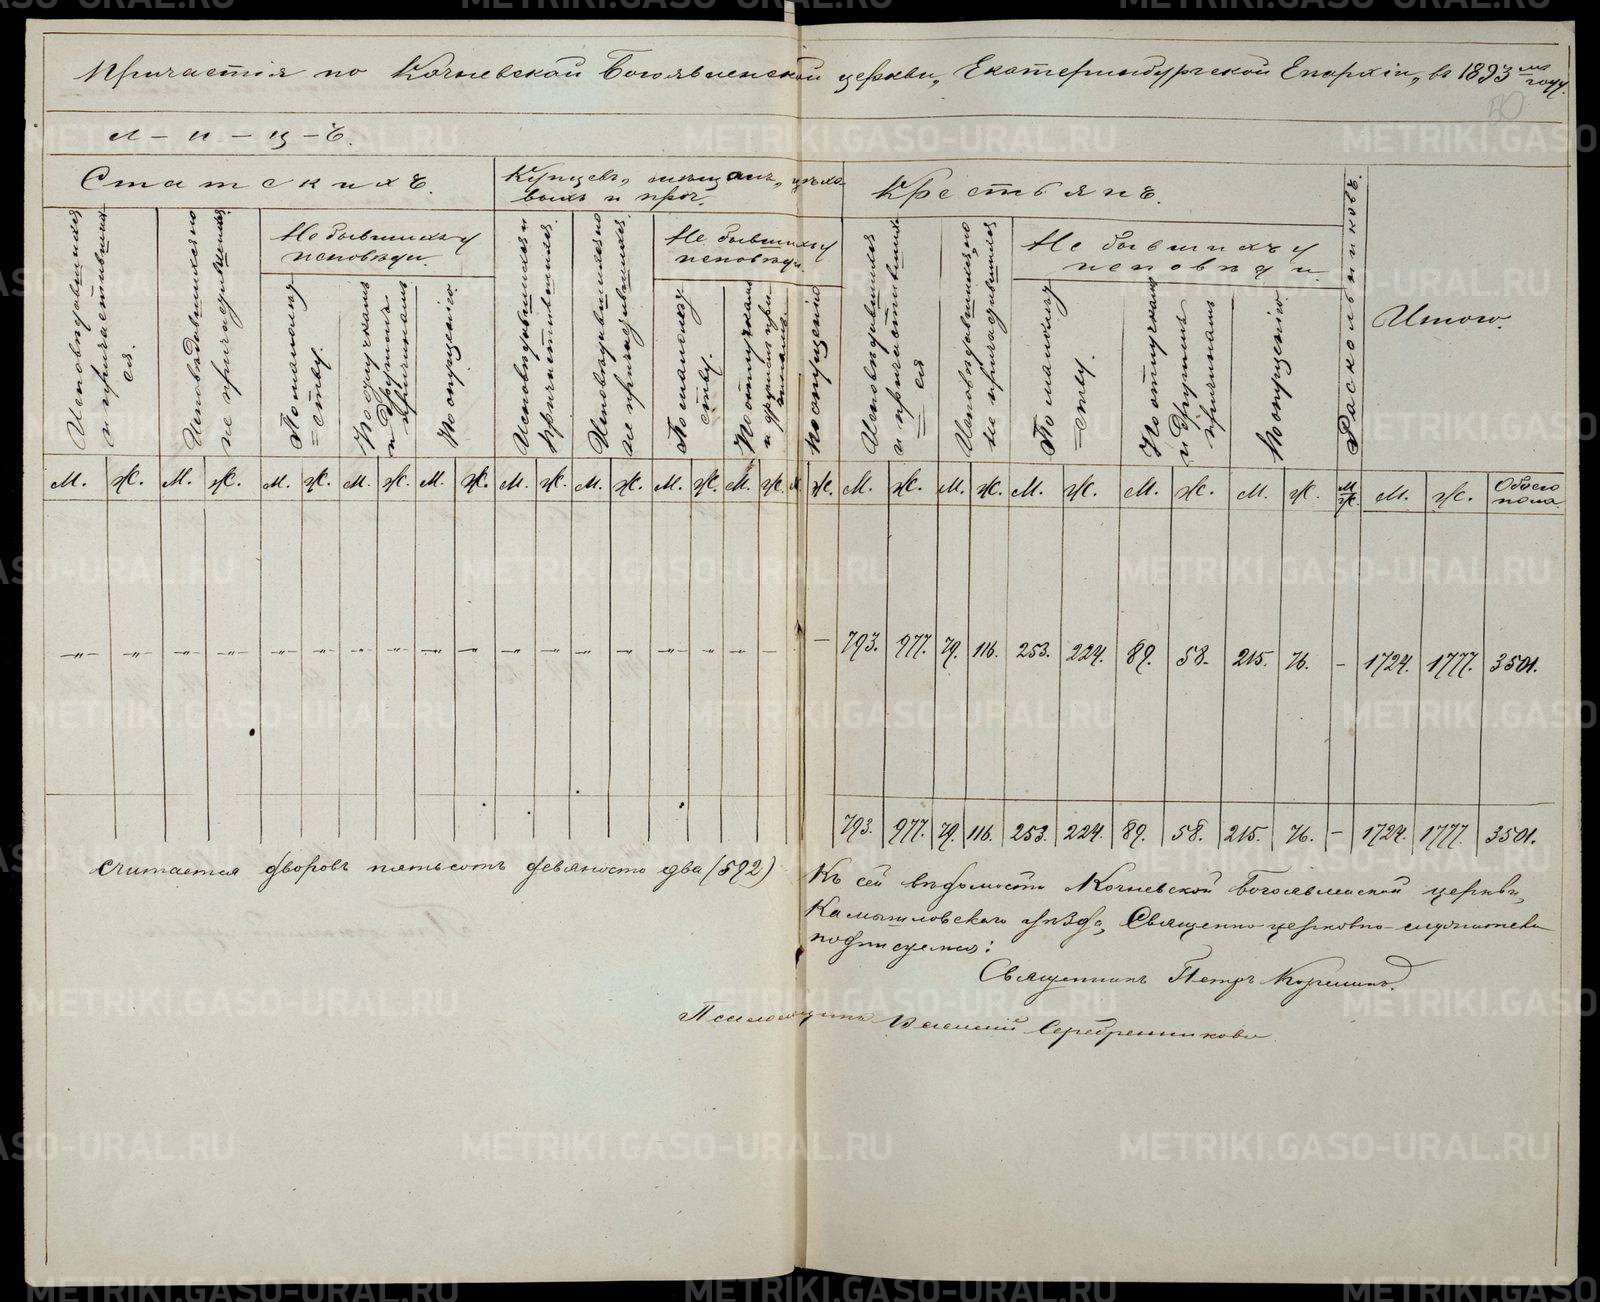 Причастія по Кочневской Богоявленской церкви, Екатеринбургской Епархіи, въ 1893 мъ году.
л - и - ц - ъ.
Статскихъ.
Купцевъ, мещанъ, цехо-
выхъ и проч.
Крестьянъ.
Исповѣдавшихся и причастившихся.
Исповѣдавшихся но не причастившихся.
Не бывшихъ у исповѣди.
По малолѣтству.
По отлучкамъ и другимъ причинамъ
По опущенію
Исповѣдавшихся и причастившихся.
Исповѣдавшихся но не причастившихся.
Не бывшихъ у исповѣди.
По малолѣтству.
По отлучкамъ и другимъ причинамъ.
По опущенію
Исповѣдавшихся и причастившихся
Исповѣдавшихся, но не причастившихся
Не бывшихъ у исповѣди
По малолѣтству.
По отлучкамъ и другимъ причинамъ
По опущенію
Раскольниковъ.
Итого.
М. Ж. М. Ж. М. Ж. М. Ж. М. Ж. М. Ж. М. Ж. М. Ж. М. Ж. М. Ж. М. Ж. М. Ж. М. Ж. М. Ж. М. Ж. М. Ж. М. Ж. Обоего пола.
793. 977. 79. 116. 253. 224. 89. 58. 215. 76. - 1724. 1777. 3501.
793. 977. 79. 116. 253. 224. 89. 58. 215. 76. - 1724. 1777. 3501.
считается дворовъ пятьсотъ девяносто два (592)
Къ сей вѣдомости Кочневской Богоявленской церкви,
Камышловскаго уѣзда, Священно-церковно-служители
подписуемся:
Священникъ Петръ
Псаломщикъ Василій Серебренниковъ
METRIKI.GASO-URAL.RU